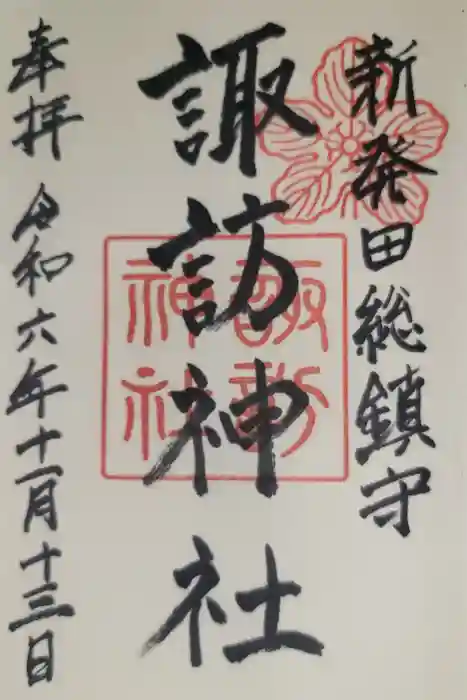 新発田総鎮守
諏訪神社
諏訪
神社
奉拝 令和六年十一月十三日